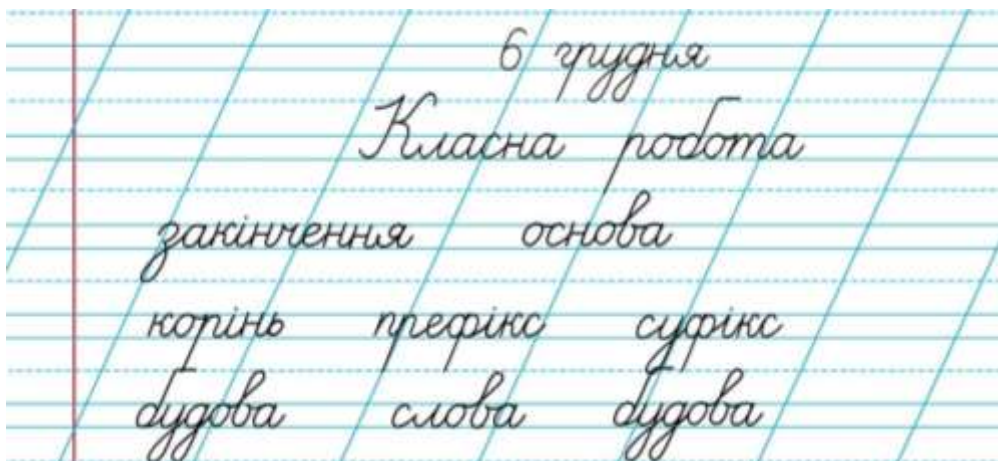 6 грудня
Класна робота
закінчення основа
корінь префікс суфікс
будова слова будова